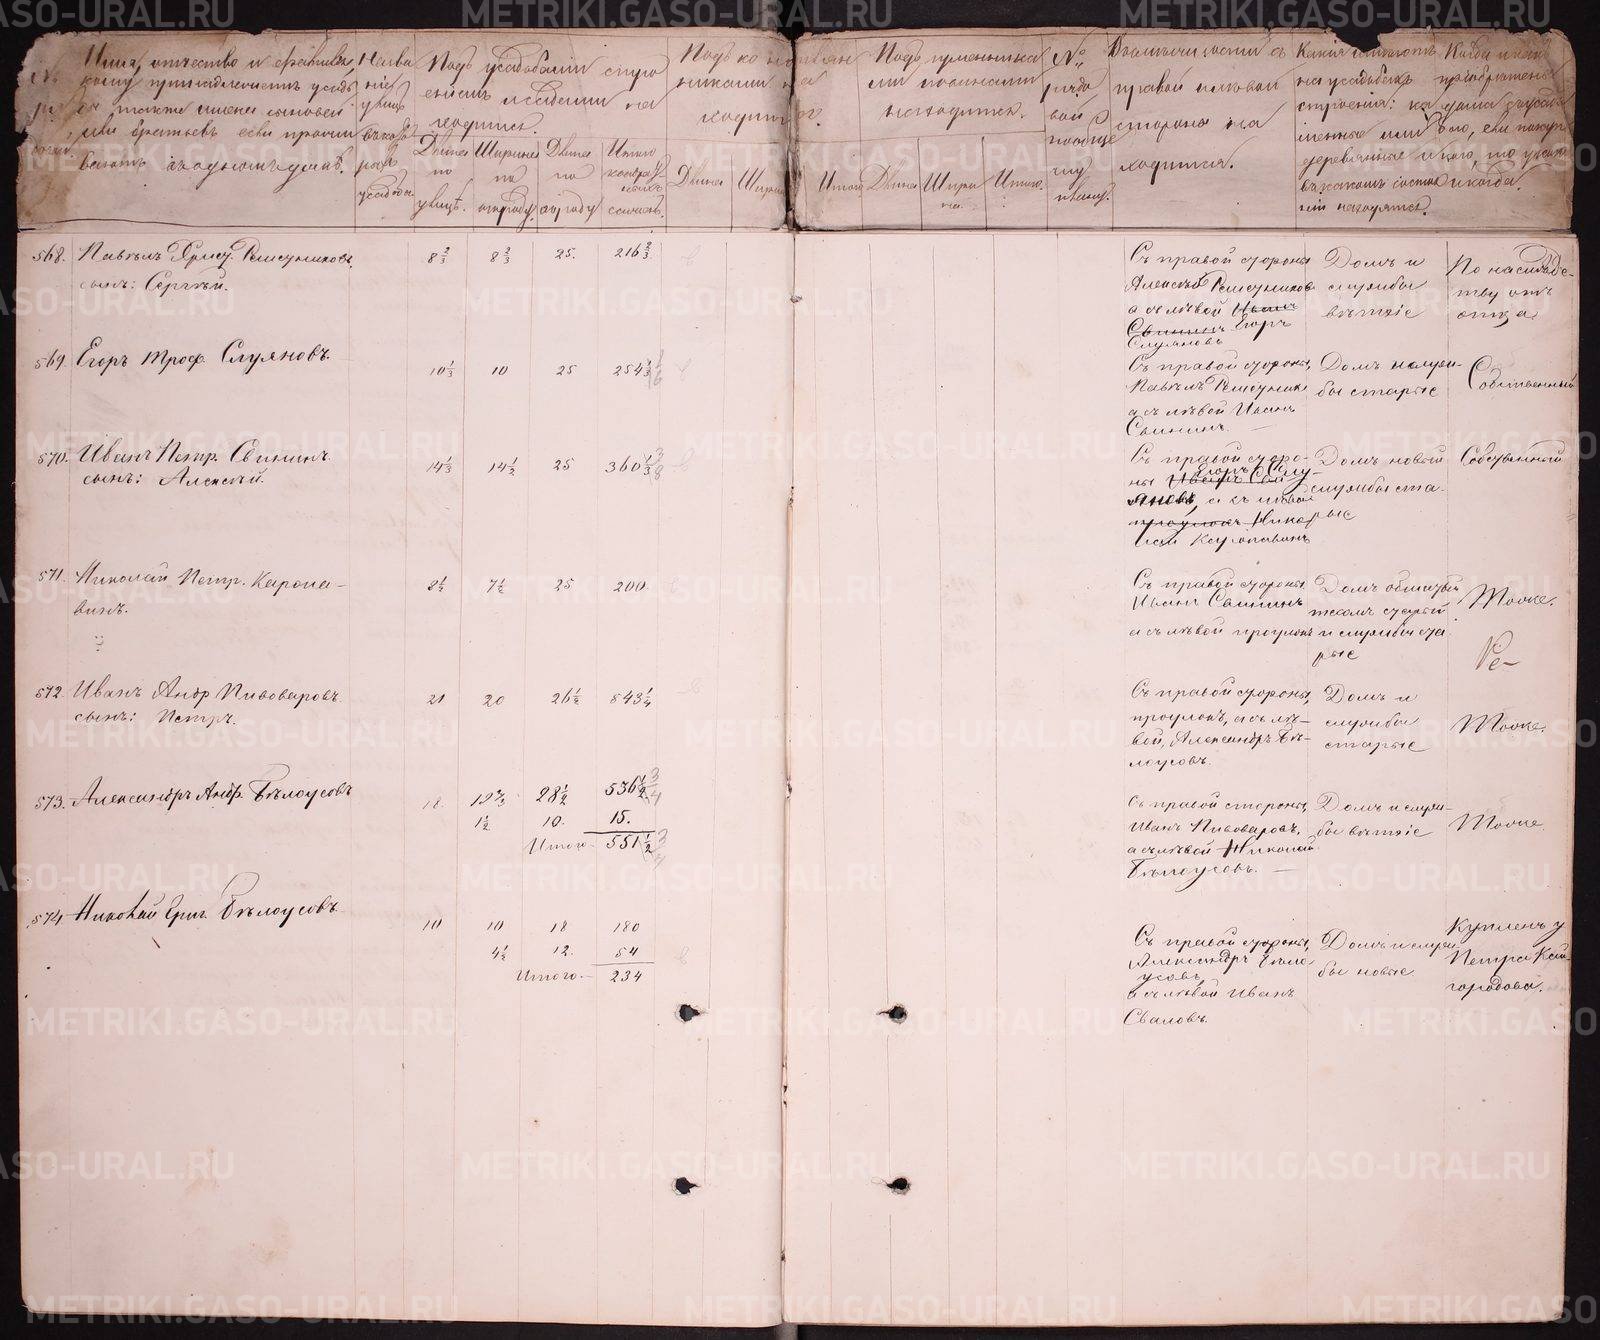 METRIKI.GASO-URAL.RU
Имя, отчество и фамилия,
кому принадлежитъ усадь
ба, также имена сыновей
или братьевъ если прожи
ваютъ въ одномъ домѣ.
Назва
ніе
улицъ
въ кото
рыхъ
усадьбы
Подъ усадебнымъ строе
ніемъ и
ходится.
Длина
по
улицѣ.
Ширина
по
огороду
Длина
по
огороду
Итого
квадрат
ныхъ
сажень.
Подъ ко
никами на
ходится.
Длина
Итого
Подъ гуменника
ми
находится.
Длина
Шири
на.
Итого.
№
рядо
вой
вообще
Въ смежности съ
правой и лѣвой
стороны на
ходится.
Какія имѣютъ
на усадьбахъ
строенія: ка
менные или
деревянные и
въ какомъ состоя
ніи находятся.
Когда и какъ
пріобрѣтенъ
кого, то у кого
и когда.
568. Павелъ Решетниковъ.
сынъ: Сергѣй.
8 2/3 8 2/3 25. 216 2/3
Съ правой стороны
Алексѣй Решетниковъ
а съ лѣвой Иванъ
Свининъ Егоръ
Слуяновъ
Домъ и
службы
ветхіе
По наслѣдс-
тву отъ
отца
569. Егоръ Троф. Слуяновъ.
10 1/3 10 25 254 1/3
Съ правой стороны,
Павелъ Решетник
а съ лѣвой Иванъ
Свининъ. —
Домъ и служ-
бы старые
Собственный
570. Иванъ Петр. Свининъ.
сынъ: Алексѣй.
14 1/3 14 1/2 25 360 1/3
Съ правой сторо-
Егоръ Слу-
ны Иванъ Сви
яновъ, а съ лѣвой
проулокъ Нико
лай Каропавинъ
Домъ новый
службы ста-
рые
Собственный
571. Николай Петр. Каропа-
винъ.
8 1/2 7 1/2 25 200.
Съ правой стороны
Иванъ Свининъ
а съ лѣвой проулокъ
старый
и службы ста
рые
Тоже.
572. Иванъ Андр Пивоваровъ.
сынъ: Петръ.
21 20 26 1/2 543 1/4
Съ правой стороны,
проулокъ, а съ лѣ-
вой, Александръ Бѣ-
лоусовъ.
Домъ и
службы
старые
Тоже.
573. Александръ Андр. Бѣлоусовъ
18 28 1/2 536 1/2
1 1/2 10. 15.
Итого 551 1/2
Съ правой стороны,
Иванъ Пивоваровъ,
а съ лѣвой Николай
Бѣлоусовъ. —
Домъ и служ-
бы ветхіе
Тоже
574 Николай Григ. Бѣлоусовъ
10 10 18 180
4 1/2 12. 54
Итого.— 234
Съ правой стороны,
Александръ Бѣло
усовъ,
а съ лѣвой Иванъ
Сваловъ.
Домъ и служ
бы новые
Купленъ у
Петра Кай-
городова.